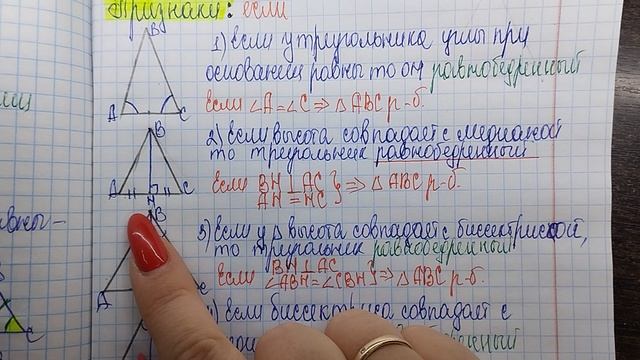 Признаки: если
1) Если у треугольника углы при
основании равны то он равнобедренный
Если ∠A=∠C ⇒ △ABC р-б.
2) Если высота совпадает с медианой
то треугольник равнобедренный
Если BH⊥AC
AH=HC } ⇒ △ABC р-б.
3) Если у △ высота совпадает с биссектрисой,
то треугольник равнобедренный
Если BH⊥AC
∠ABH=∠CBH } ⇒ △ABC р-б.
Если биссектриса совпадает с
B
A
C
B
A
H
C
B
A
C